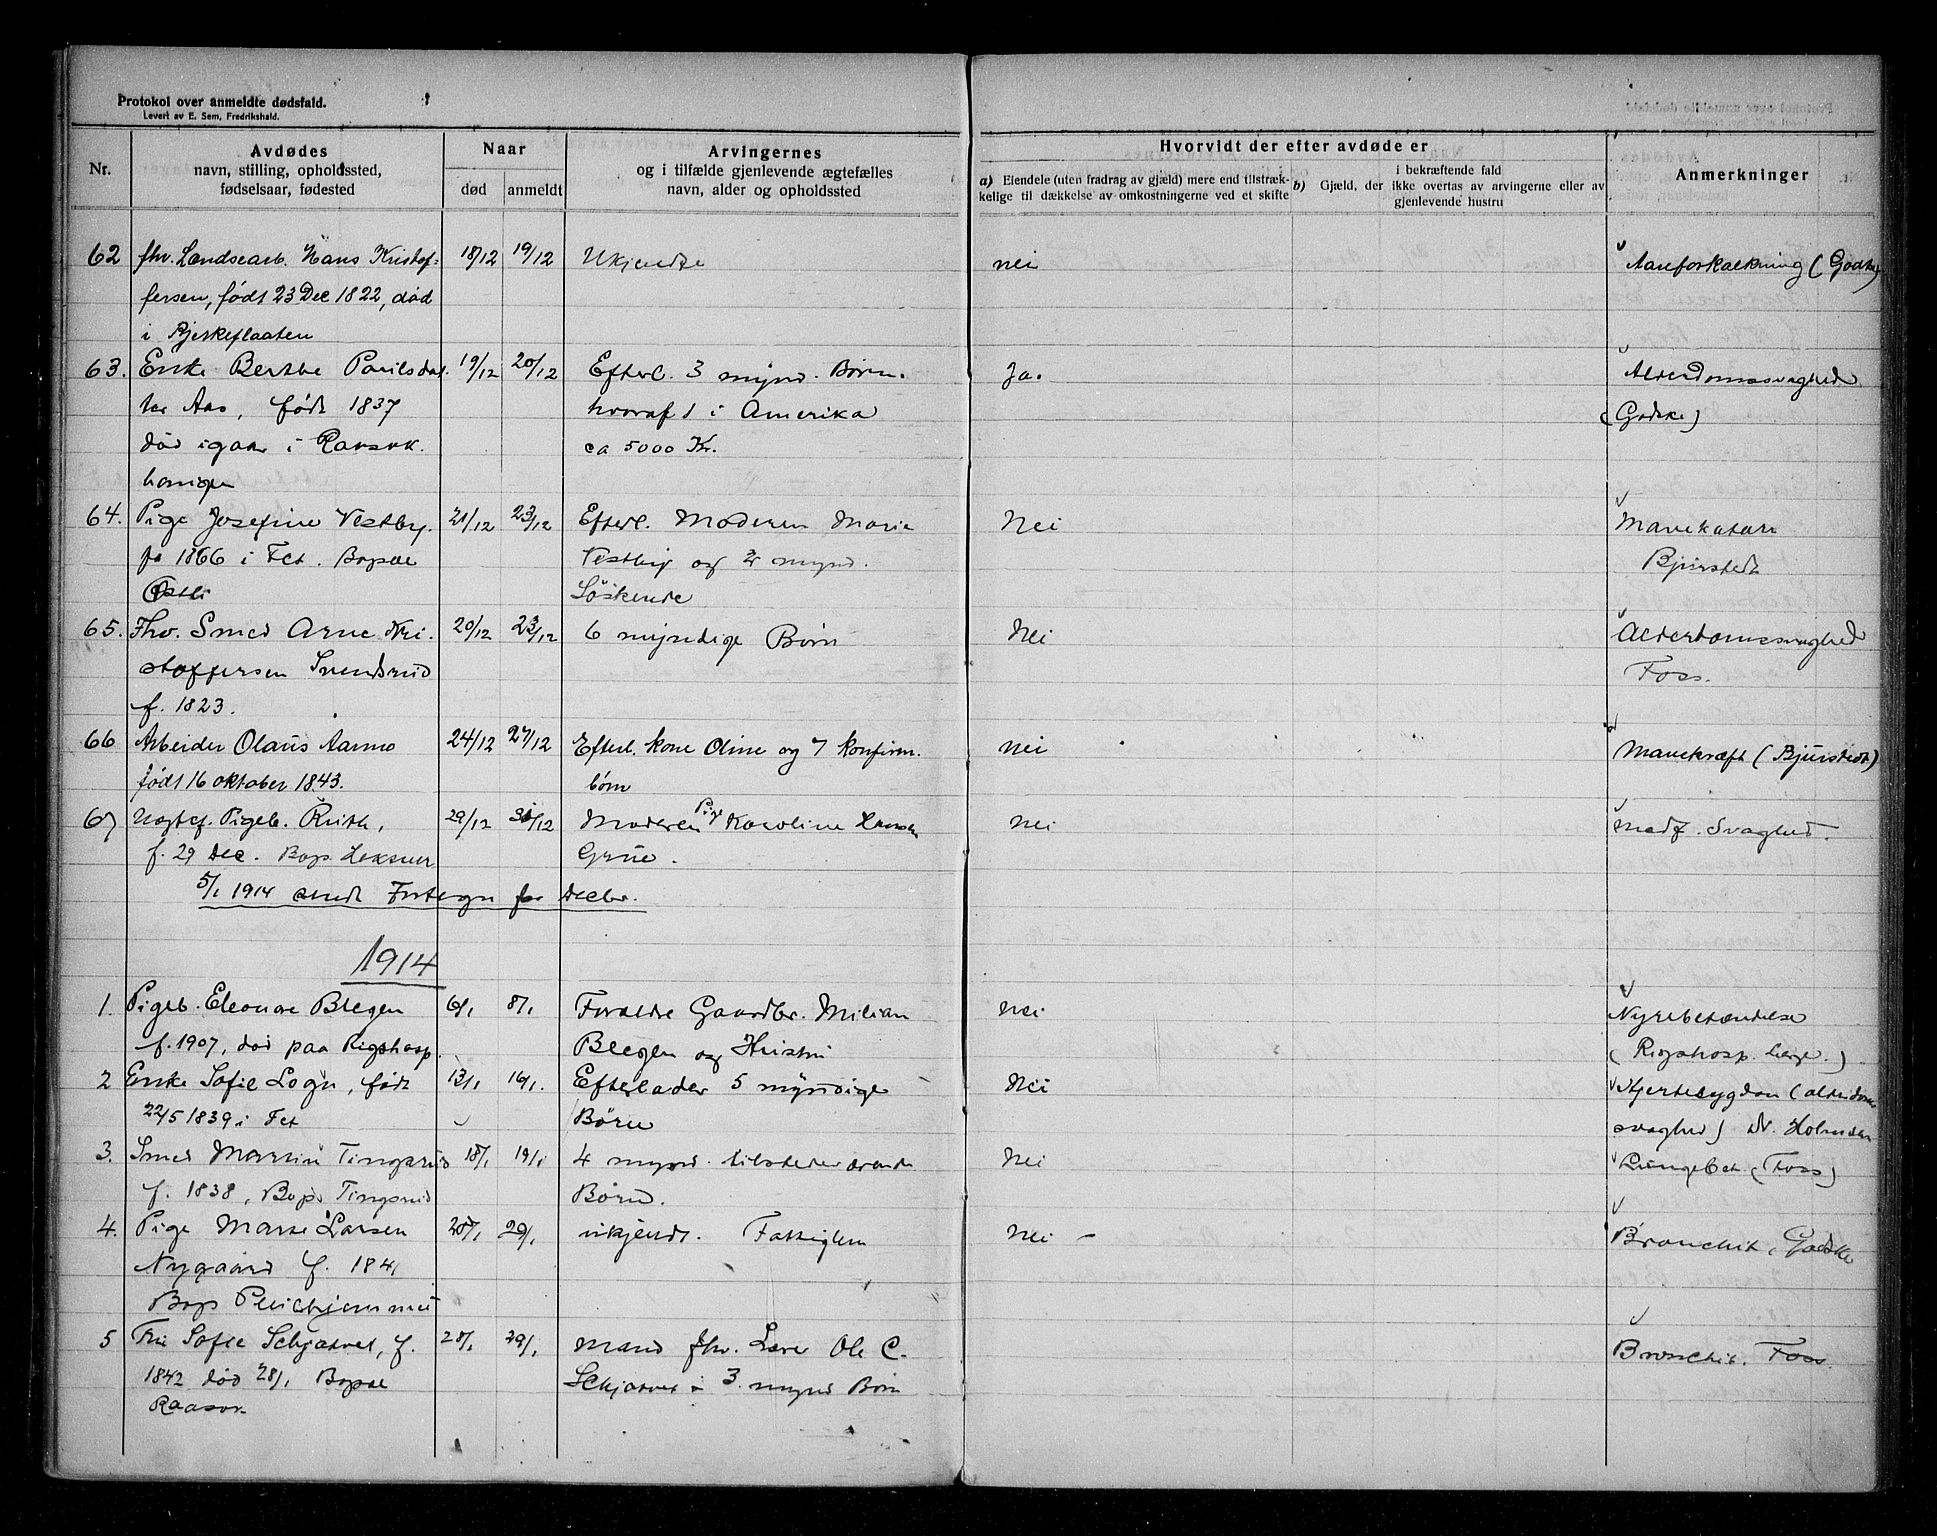 Protokol over anmeldte dødsfald.
Levert av E. Sem, Fredrikshald.
Nr.
Avdødes
navn, stilling, opholdssted,
fødselsaar, fødested
Naar
død anmeldt
Arvingernes
og i tilfælde gjenlevende ægtefælles
navn, alder og opholdssted
Hvorvidt der efter avdøde er
a) Eiendele (uten fradrag av gjæld) mere end tilstræk-
kelige til dækkelse av omkostningerne ved et skifte
b) Gjæld, der
i bekræftende fald
ikke overtas av arvingerne eller av
gjenlevende hustru
Anmerkninger
62 fhv. Landsearb. Hans Kristof- 18/12 19/12 Ukjendte nei Aareforkalkning (Godske)
fersen, født 23 Dec 1822, død
i Bjerkeflaaten
63. Enke Berthe Paulsdat- 19/12 20/12 Efterl. 3 mynd. Børn. Ja. Alderdomssvaghed
ter Aas, født 1837 hvoraf 1 i Amerika (Godske)
død igaar i ca 5000 Kr.
64. Pige Josefine Vestby. 21/12 23/12 Efterl. Moderen Marie Nei Mavekatarr
fø 1866 i Fet. Bopæl Vestby og 2 mynd. Bjurstedt
Østli Søskende
65. Fhv. Smed Arne Kri- 20/12 23/12 6 myndige Børn Nei Alderdomssvaghed
stoffersen Svendsrud Foss.
f. 1823.
66 Arbeider Olaus Aarmo 24/12 27/12 Efterl. kone Oline og 7 konfirm. nei Mavekræft (Bjurstedt)
født 16 oktober 1843. børn
67 Uegtef. Pigeb. Ruth, 29/12 30/12 Moderen Pige Karoline Hansen nei medf. Svaghed.
f. 29 Dec. Bop. Grue.
5/1 1914 sendt Fortegn for Decbr.
1914
1. Pigeb. Eleonore Blegen 6/1 8/1 Forældre Gaardbr. Milian nei Nyrebetændelse
f. 1907, død paa Rigshosp. Blegen og Hustru (Rigshosp. Læge.)
2 Enke Sofie Logn, født 13/1 16/1. Efterlader 5 myndige Nei Hjertesygdom (alderdoms
22/5 1839 i Fet Børn svaghed) Dr. Holmsen
3. Smed Martin Tingsrud 18/1 19/1 4 mynd. tilstedeværende Nei Lungebet. (Foss)
f. 1838, Bop. Tingsrud Børn.
4. Pige Marie Larsen 28/1 29/1 ukjendt. Fattiglem Nei - Bronchit, Godske
Nygaard f. 1841
Bop Pleiehjemmet
5 Fru Sofie Schjatvet, f. 28/1 29/1 Mand fhv. Lærer Ole C. Bronchit. Foss.
1842 død 28/1 Bopæl Schjatvet i 3 mynd Børn